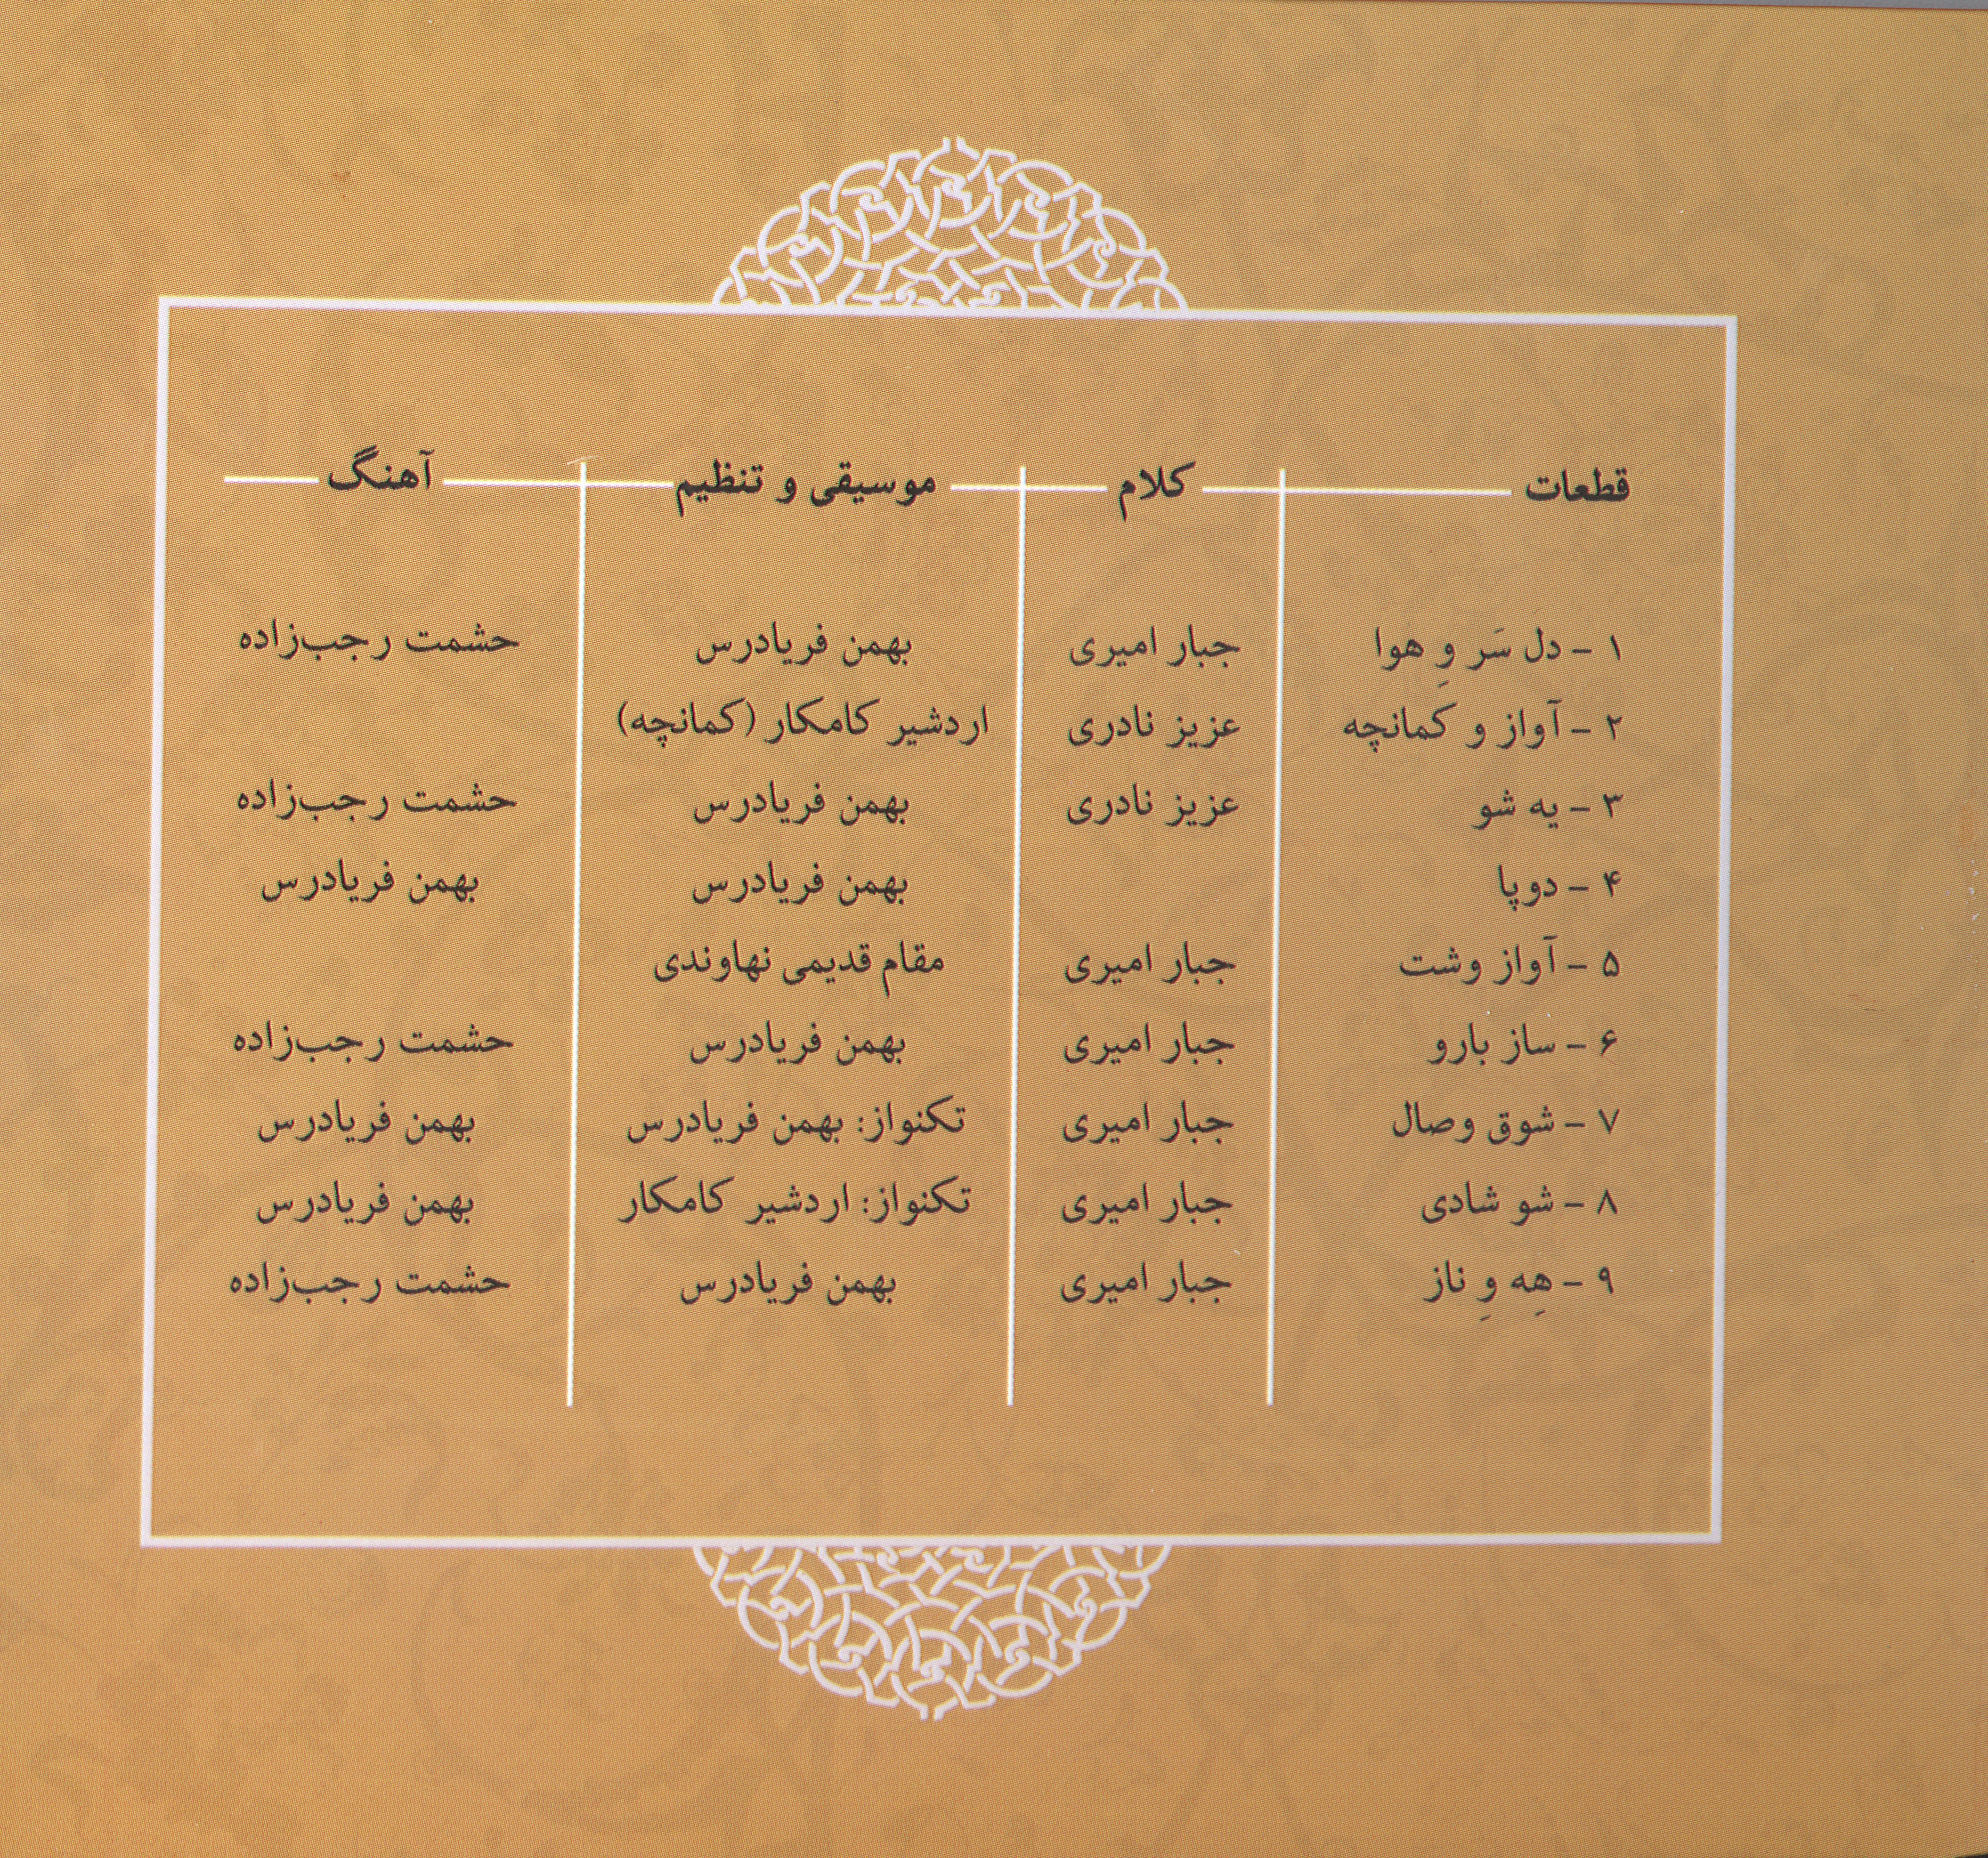 قطعات کلام موسیقی و تنظیم آهنگ
۱ - دل سَر وِ هوا جبار امیری بهمن فریادرس حشمت رجب‌زاده
۲ - آواز و کمانچه عزیز نادری اردشیر کامکار (کمانچه)
۳ - یه شو عزیز نادری بهمن فریادرس حشمت رجب‌زاده
۴ - دوپا بهمن فریادرس بهمن فریادرس
۵ - آواز وشت جبار امیری مقام قدیمی نهاوندی
۶ - ساز بارو جبار امیری بهمن فریادرس حشمت رجب‌زاده
۷ - شوق وصال جبار امیری تکنواز: بهمن فریادرس بهمن فریادرس
۸ - شو شادی جبار امیری تکنواز: اردشیر کامکار بهمن فریادرس
۹ - هِه وِ ناز جبار امیری بهمن فریادرس حشمت رجب‌زاده